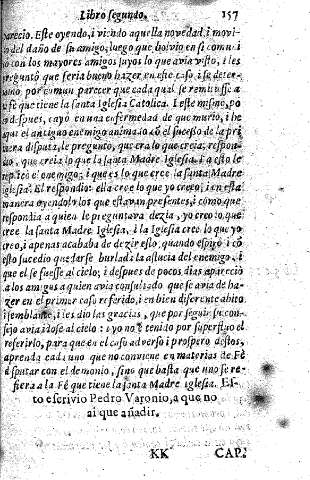 Libro segundo. 157
parecio. Este oyendo, i viendo aquella novedad, i movi-
do del daño de su amigo, luego que bolvio en si comuni
co con los mayores amigos suyos lo que avia visto, i les
pregũtò que seria bueno hazer en este caso, i se deter-
minò, por comun parecer que cada qual se remitiesse a
la Fè que tiene la santa Iglesia Catolica. I este mismo, po
co despues, cayò en una enfermedad de que murio, i he
aqui el antiguo enemigo animado cõ el sucesso de la pri
mera disputa, le pregunto, que era lo que creia; respon-
dio, que creia lo que la santa Madre Iglesia. I a esto le
replicò el enemigo; i que es lo que cree la santa Madre
Iglesia? El respondio: ella cree lo que yo creo; i en esta
manera oyendolo los que estavan presentes, i como que
respondia a quien le preguntava dezia, yo creo lo que
cree la santa Madre Iglesia, i la Iglesia cree lo que yo
creo, i apenas acababa de dezir esto, quando espirò i cõ
esto sucedio quedarse burlada la astucia del enemigo, i
que el se fuesse al cielo; i despues de pocos dias aparecio
a los amigos a quien avia consultado que se avia de ha-
zer en el primer caso referido, i en bien diferente abito
i semblante, i les dio las gracias, que por seguir su con-
sejo avia ido se al cielo: i yo no è tenido por superfluo el
referirlo, para que en el caso adverso i prospero destos,
aprenda cada uno que no conviene en materias de Fè
disputar con el demonio, sino que basta que uno se re-
fiera a la Fè que tiene la santa Madre Iglesia. Es-
to escrivio Pedro Varonio, a que no
ai que añadir.
KK CAP.